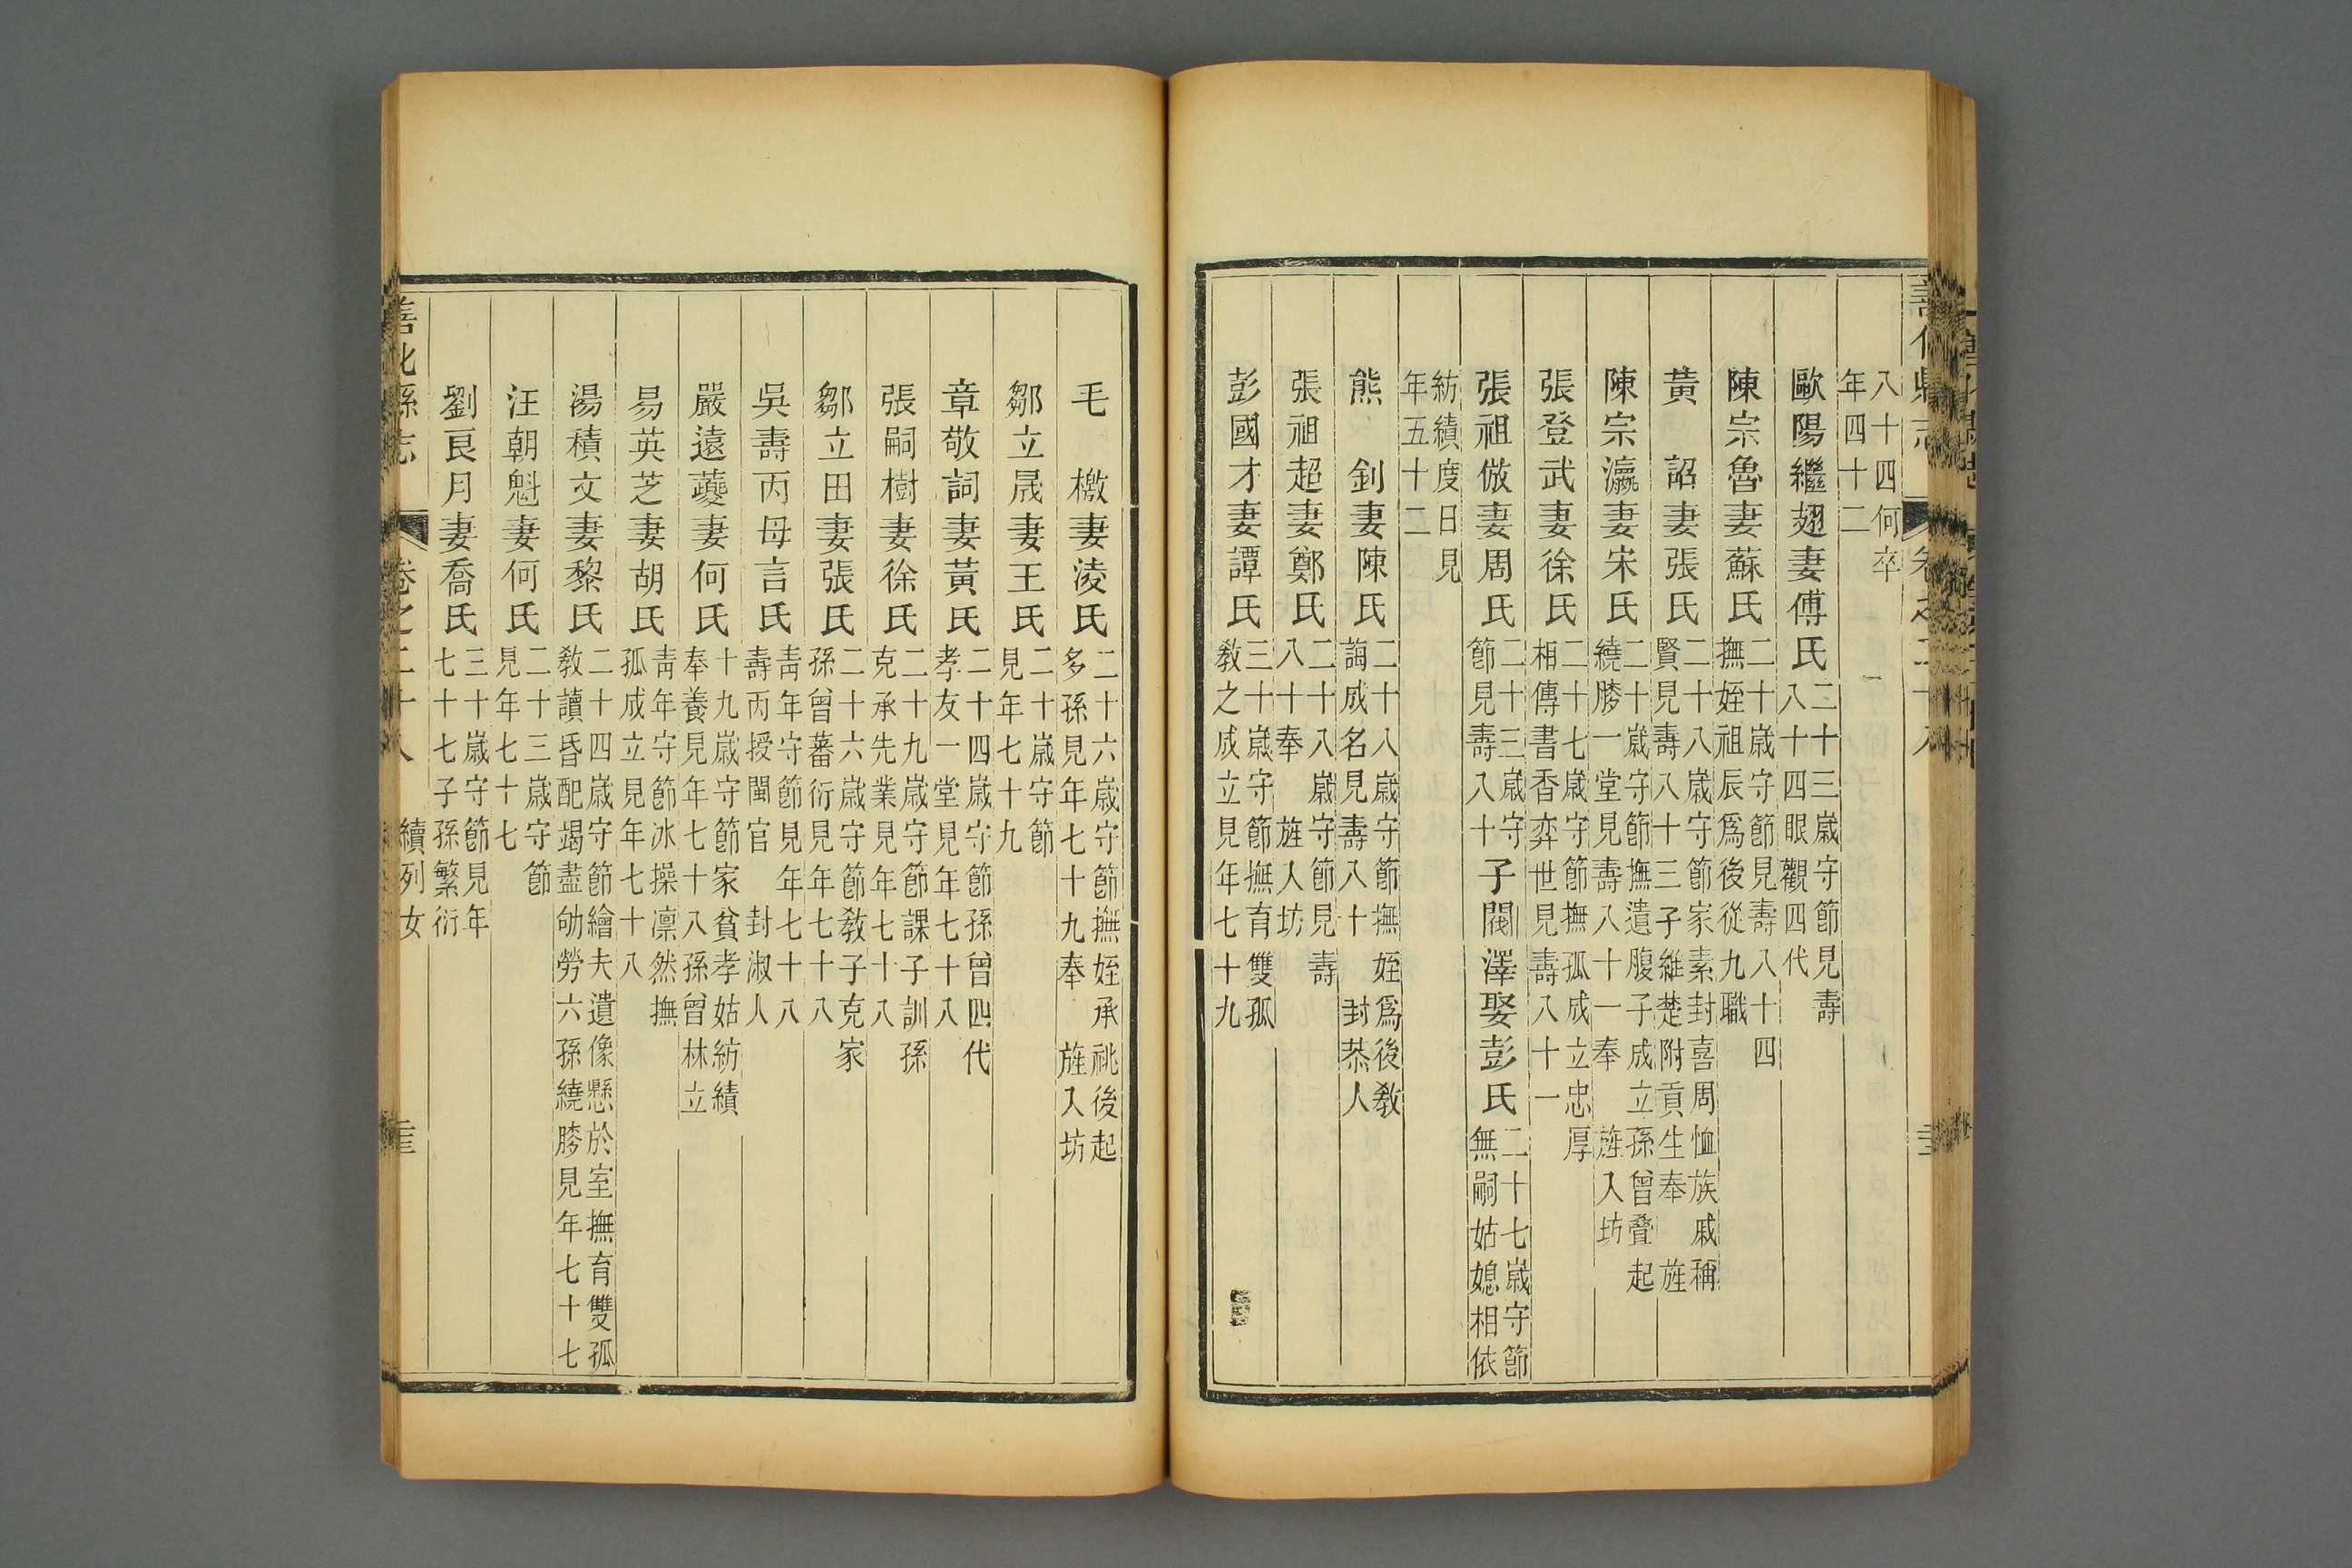 善化縣志 卷之二十八
八十四何卒
年四十二
歐陽繼翅妻傅氏二十三歲守節見壽
八十四眼觀四代
陳宗魯妻蘇氏二十歲守節見壽八十四
撫姪祖辰爲後從九職
黃 詔妻張氏二十八歲守節家素封喜周恤族戚稱
賢見壽八十三子維楚附貢生奉 旌
陳宗瀛妻宋氏二十歲守節撫遺腹子成立孫曾叠起
繞膝一堂見壽八十一奉 旌入坊
張登武妻徐氏二十七歲守節撫孤成立忠厚
相傳書香弈世見壽八十一
張祖倣妻周氏二十三歲守
節見壽八十子閥澤娶彭氏二十七歲守節
無嗣姑媳相依
紡績度日見
年五十二
熊 釗妻陳氏二十八歲守節撫姪爲後教
誨成名見壽八十 封恭人
張祖超妻鄭氏二十八歲守節見壽
八十奉 旌入坊
彭國才妻譚氏三十歲守節撫育雙孤
教之成立見年七十九
毛 檄妻淩氏二十六歲守節撫姪承祧後起
多孫見年七十九奉 旌入坊
鄒立晟妻王氏二十歲守節
見年七十九
章敬詞妻黃氏二十四歲守節孫曾四代
孝友一堂見年七十八
張嗣樹妻徐氏二十九歲守節課子訓孫
克承先業見年七十八
鄒立田妻張氏二十六歲守節教子克家
孫曾蕃衍見年七十八
吳壽丙母言氏青年守節見年七十八
壽丙授閩官 封淑人
嚴遠蘷妻何氏十九歲守節家貧孝姑紡績
奉養見年七十八孫曾林立
易英芝妻胡氏青年守節冰操凛然撫
孤成立見年七十八
湯積文妻黎氏二十四歲守節繪夫遺像懸於室撫育雙孤
教讀昏配竭盡劬勞六孫繞膝見年七十七
汪朝魁妻何氏二十三歲守節
見年七十七
劉良月妻喬氏三十歲守節見年
七十七子孫繁衍
善化縣志 卷之二十八 續列女